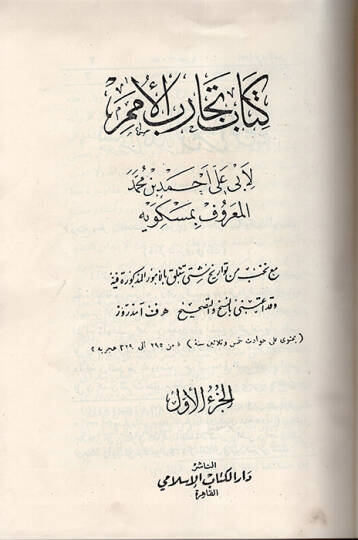 كتاب تجارب الأمم
لأبي علي أحمد بن محمد
المعروف بمسكويه
مع نخب من تواريخ شتى تتعلق بالأمور المذكورة فيه
وقد اعتنى بالنسخ والتصحيح ه. ف. آمدروز
( يحتوي على حوادث خمس وثلاثين سنة ) « من ٢٩٥ الى ٣٢٩ هجرية »
الجزء الأول
الناشر
دار الكتاب الإسلامي
القاهرة